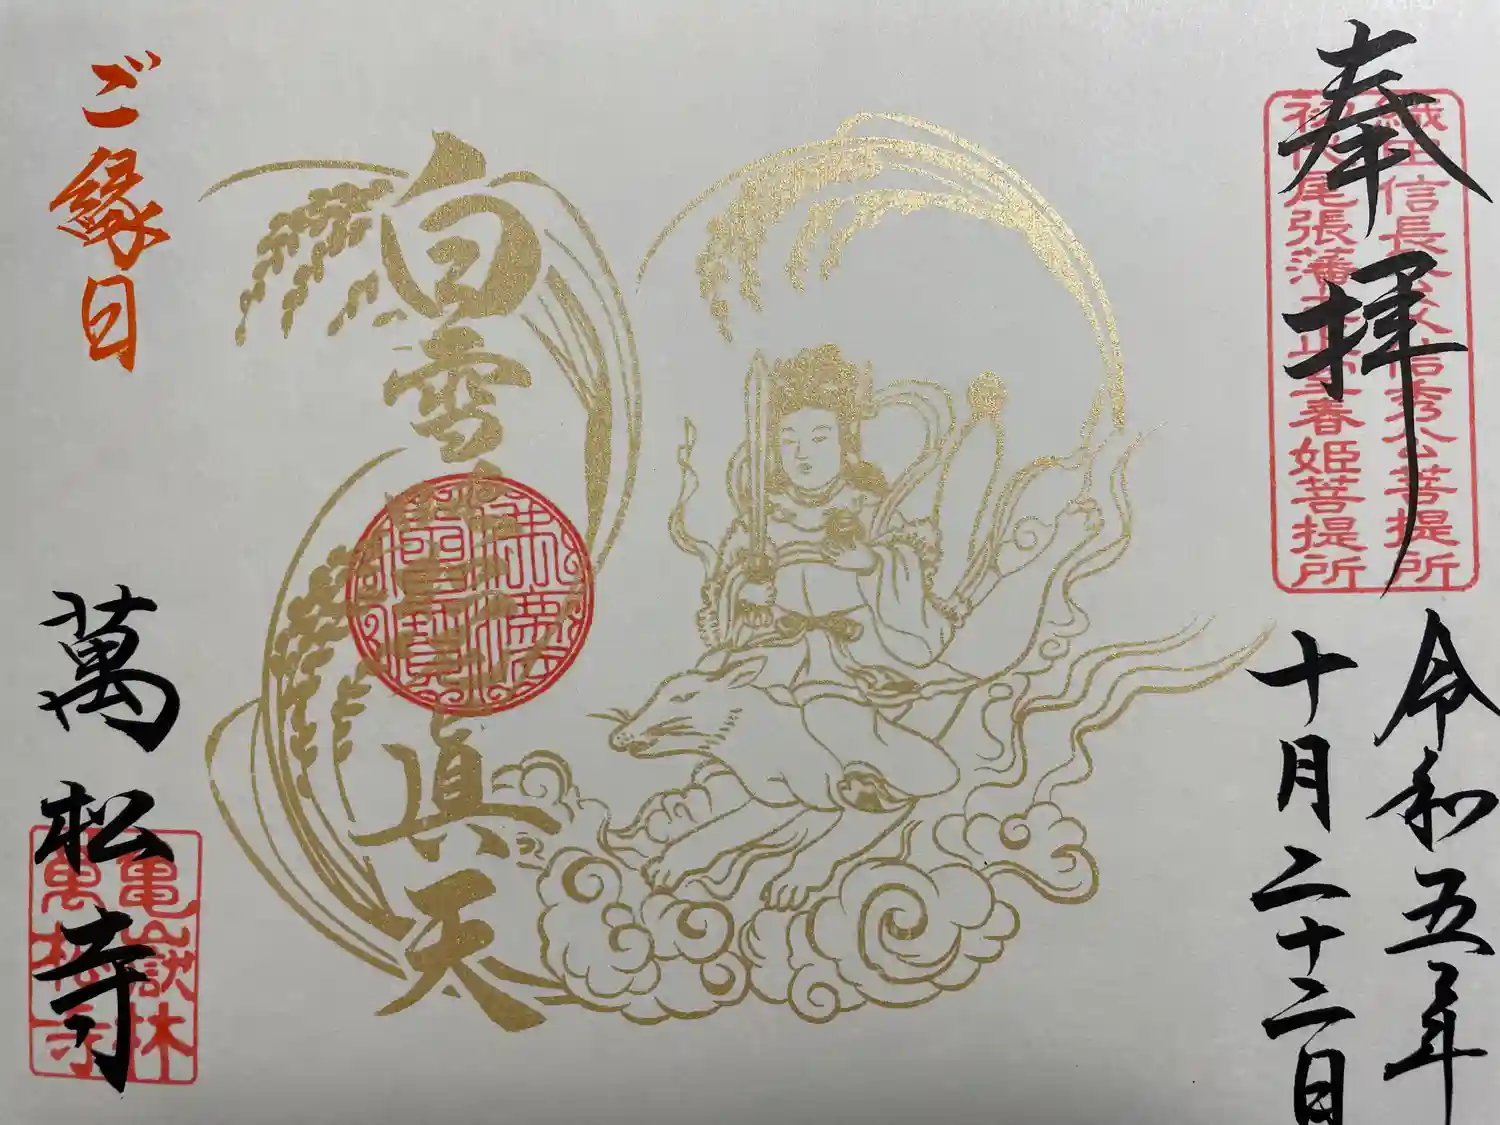 奉拝
織田信長公父信秀公菩提所
初代尾張藩主正室春姫菩提所
令和五年
十月二十二日
白雪吒枳眞天
ご縁日
萬松寺
亀岳林
萬松寺